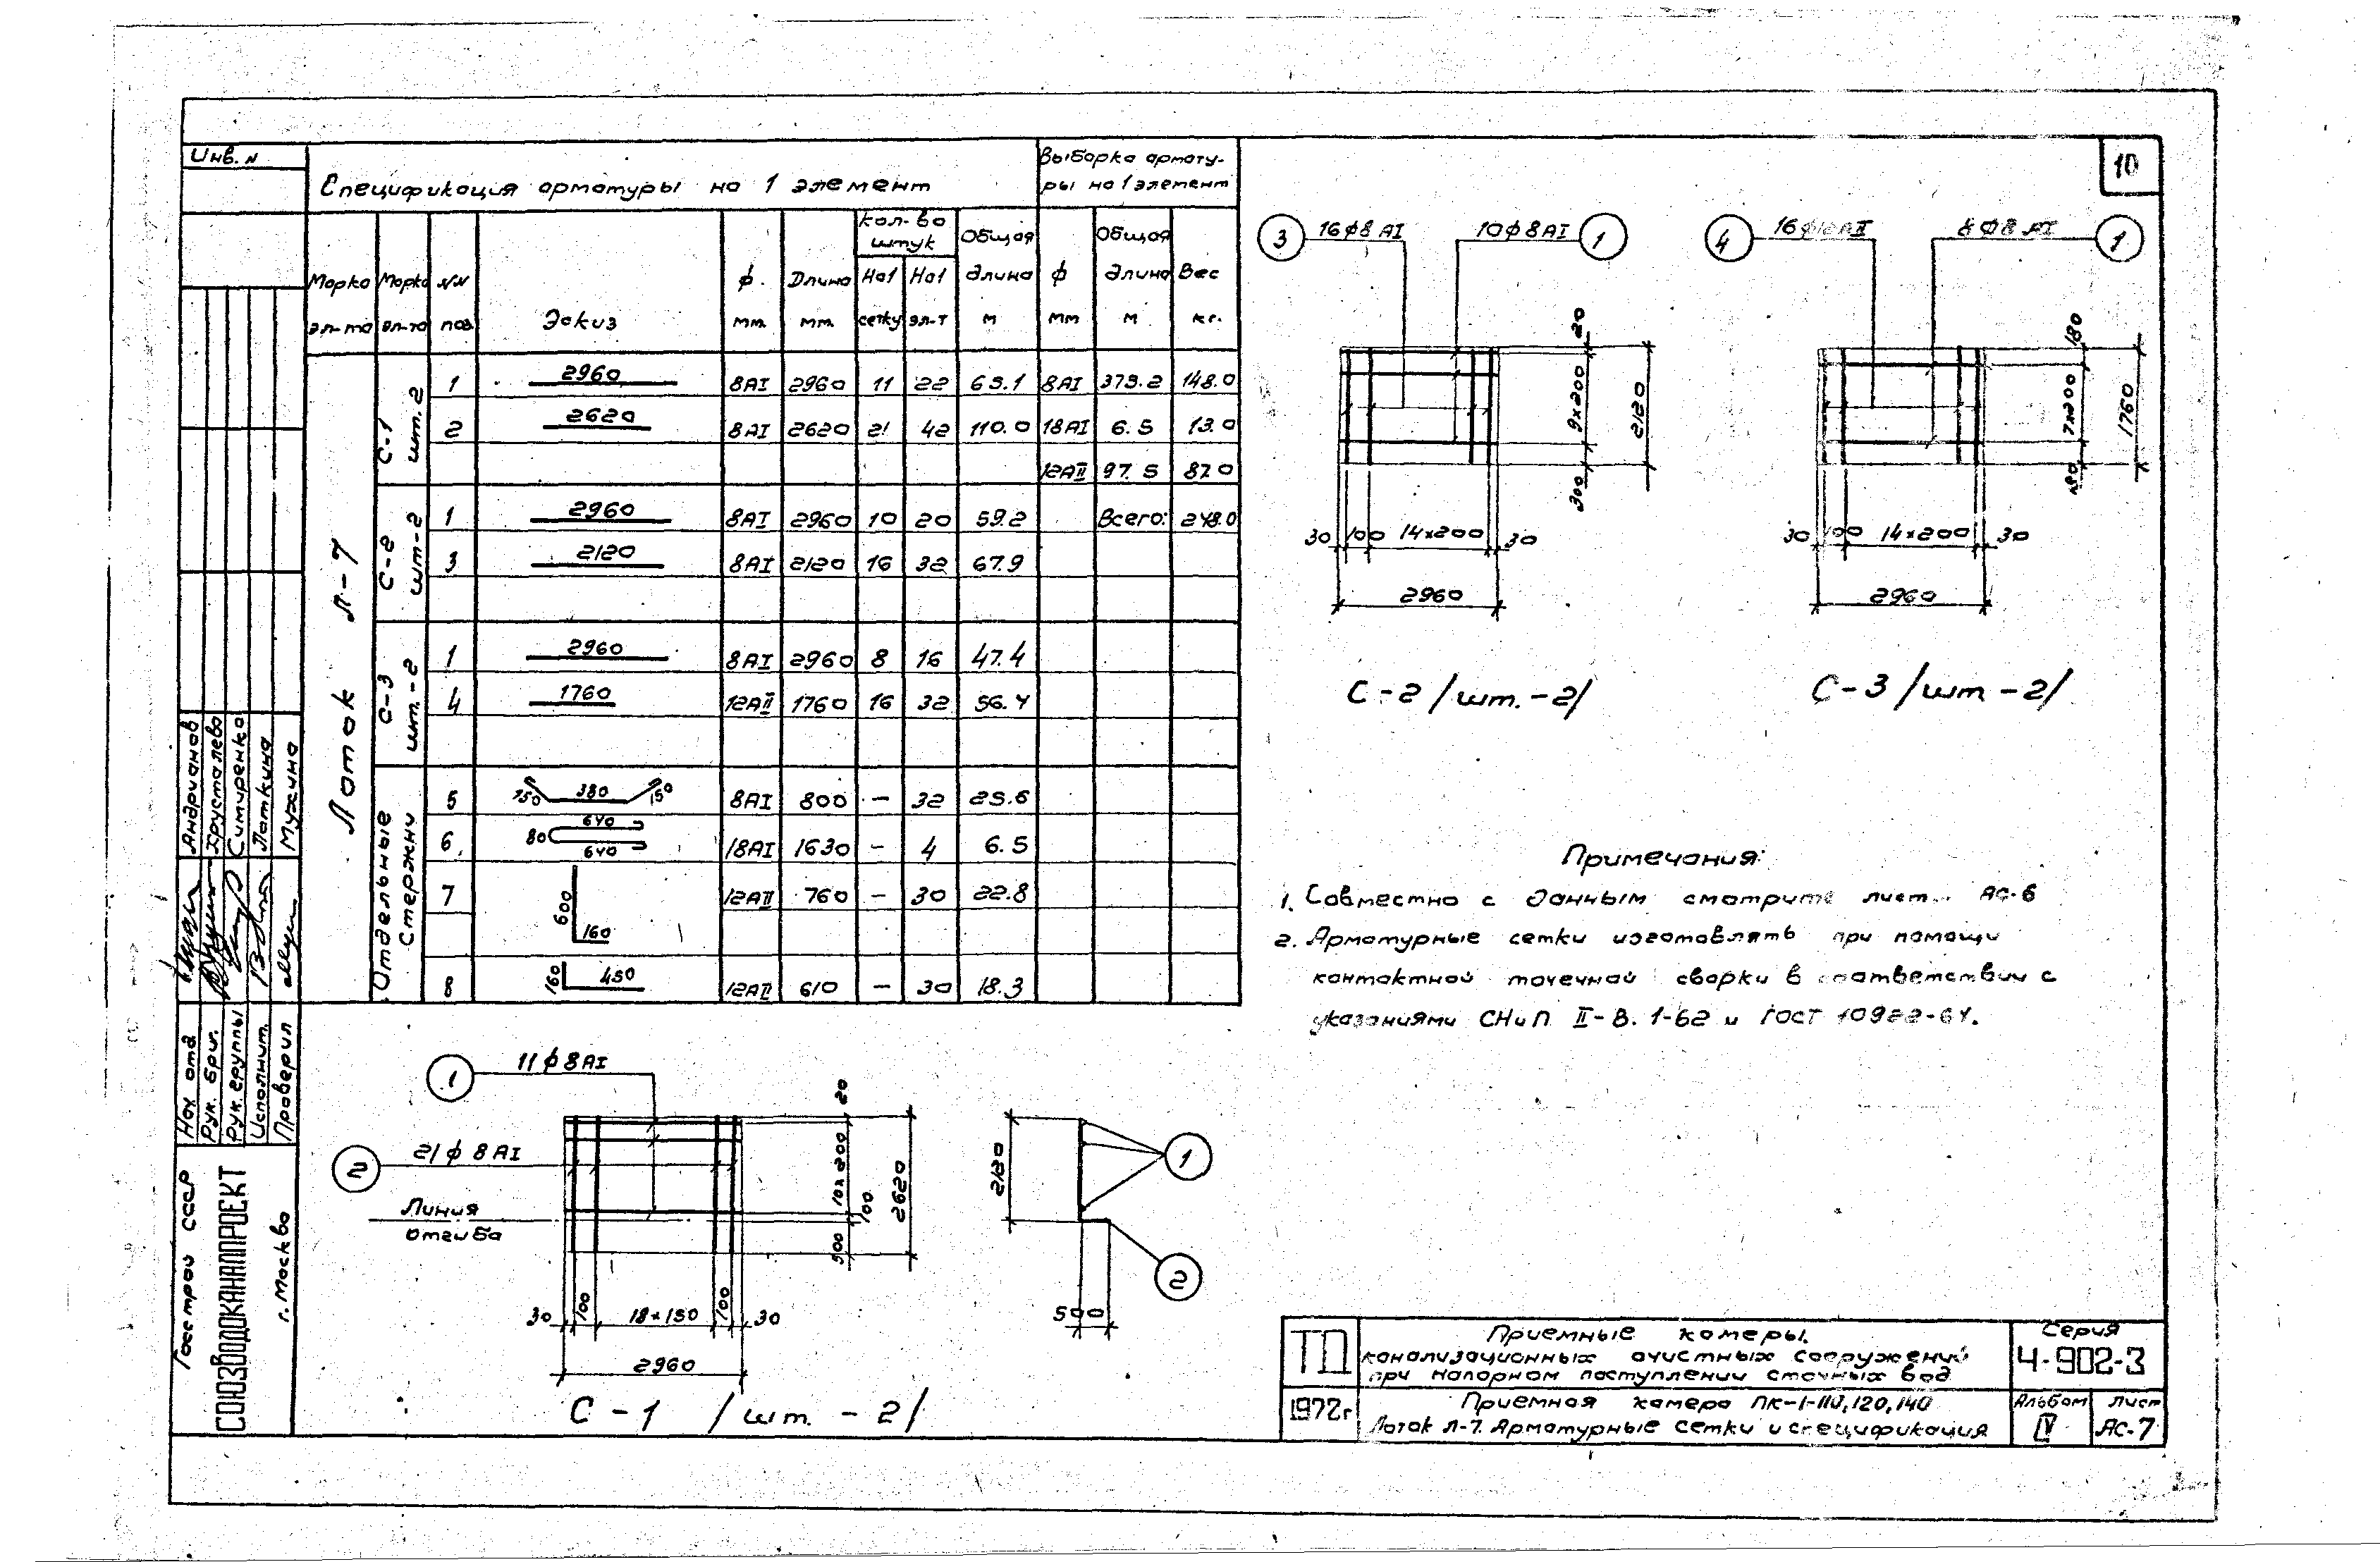 Инв. N
10
Спецификация арматуры на 1 элемент
Выборка армату-
ры на 1 элемент
Марка эл-та
Марка эл-та
NN поз.
Эскиз
ф мм.
Длина мм.
Кол-во штук
На 1 сетку
На 1 эл-т
Общая длина м
ф мм
Общая длина м
Вес кг.
Лоток Л-7
С-1 шт. 2
1 2960 8АI 2960 11 22 65.1 8АI 375.2 148.0
2 2620 8АI 2620 21 42 110.0 18АI 6.5 13.0
12АII 97.5 87.0
С-2 шт-2
1 2960 8АI 2960 10 20 59.2 Всего: 248.0
3 2120 8АI 2120 16 32 67.9
С-3 шт.-2
1 2960 8АI 2960 8 16 47.4
4 1760 12АII 1760 16 32 56.4
Отдельные стержни
5 150 380 150 8АI 800 - 32 25.6
6. 80 640 640 18АI 1630 - 4 6.5
7 600 160 12АII 760 - 30 22.8
8 160 450 12АII 610 - 30 18.3
3 16ф8АI 10ф8АI 1
20
9х200
2120
300
30 100 14х200 30
2960
С-2 /шт.-2/
4 16ф12АII 8ф8АI 1
180
7х200
1760
180
30 100 14х200 30
2960
С-3 /шт-2/
Примечания:
1. Совместно с данным смотрите лист АС-6
2. Арматурные сетки изготовлять при помощи
контактной точечной сварки в соответствии с
указаниями СНиП II-В. 1-62 и ГОСТ 10922-64.
1 11ф8АI
2 21ф8АI
Линия
отгиба
20
10х200
100
500
2620
30 100 18х150 100 30
2960
С-1 /шт. - 2/
2120
1
2
500
Андрианов
Хрусталева
Симиренко
Паткина
Мухина
Нач. отд
Рук. бриг.
Рук. группы
Исполнит.
Проверил
Госстрой СССР
СОЮЗВОДОКАНАЛПРОЕКТ
г. Москва
ТП
1972г
Приемные камеры
канализационных очистных сооружений
при напорном поступлении сточных вод
Серия
4-902-3
Приемная камера ПК-1-110,120,140
Лоток Л-7. Арматурные сетки и спецификация
Альбом
IV
Лист
АС-7